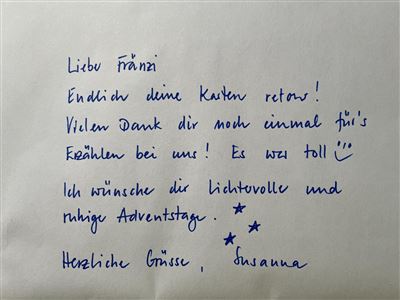 Liebe Fränzi
Endlich deine Karten retour!
Vielen Dank dir noch einmal für's
Erzählen bei uns! Es war toll
Ich wünsche dir lichtervolle und
ruhige Adventstage.
Herzliche Grüsse, Susanna